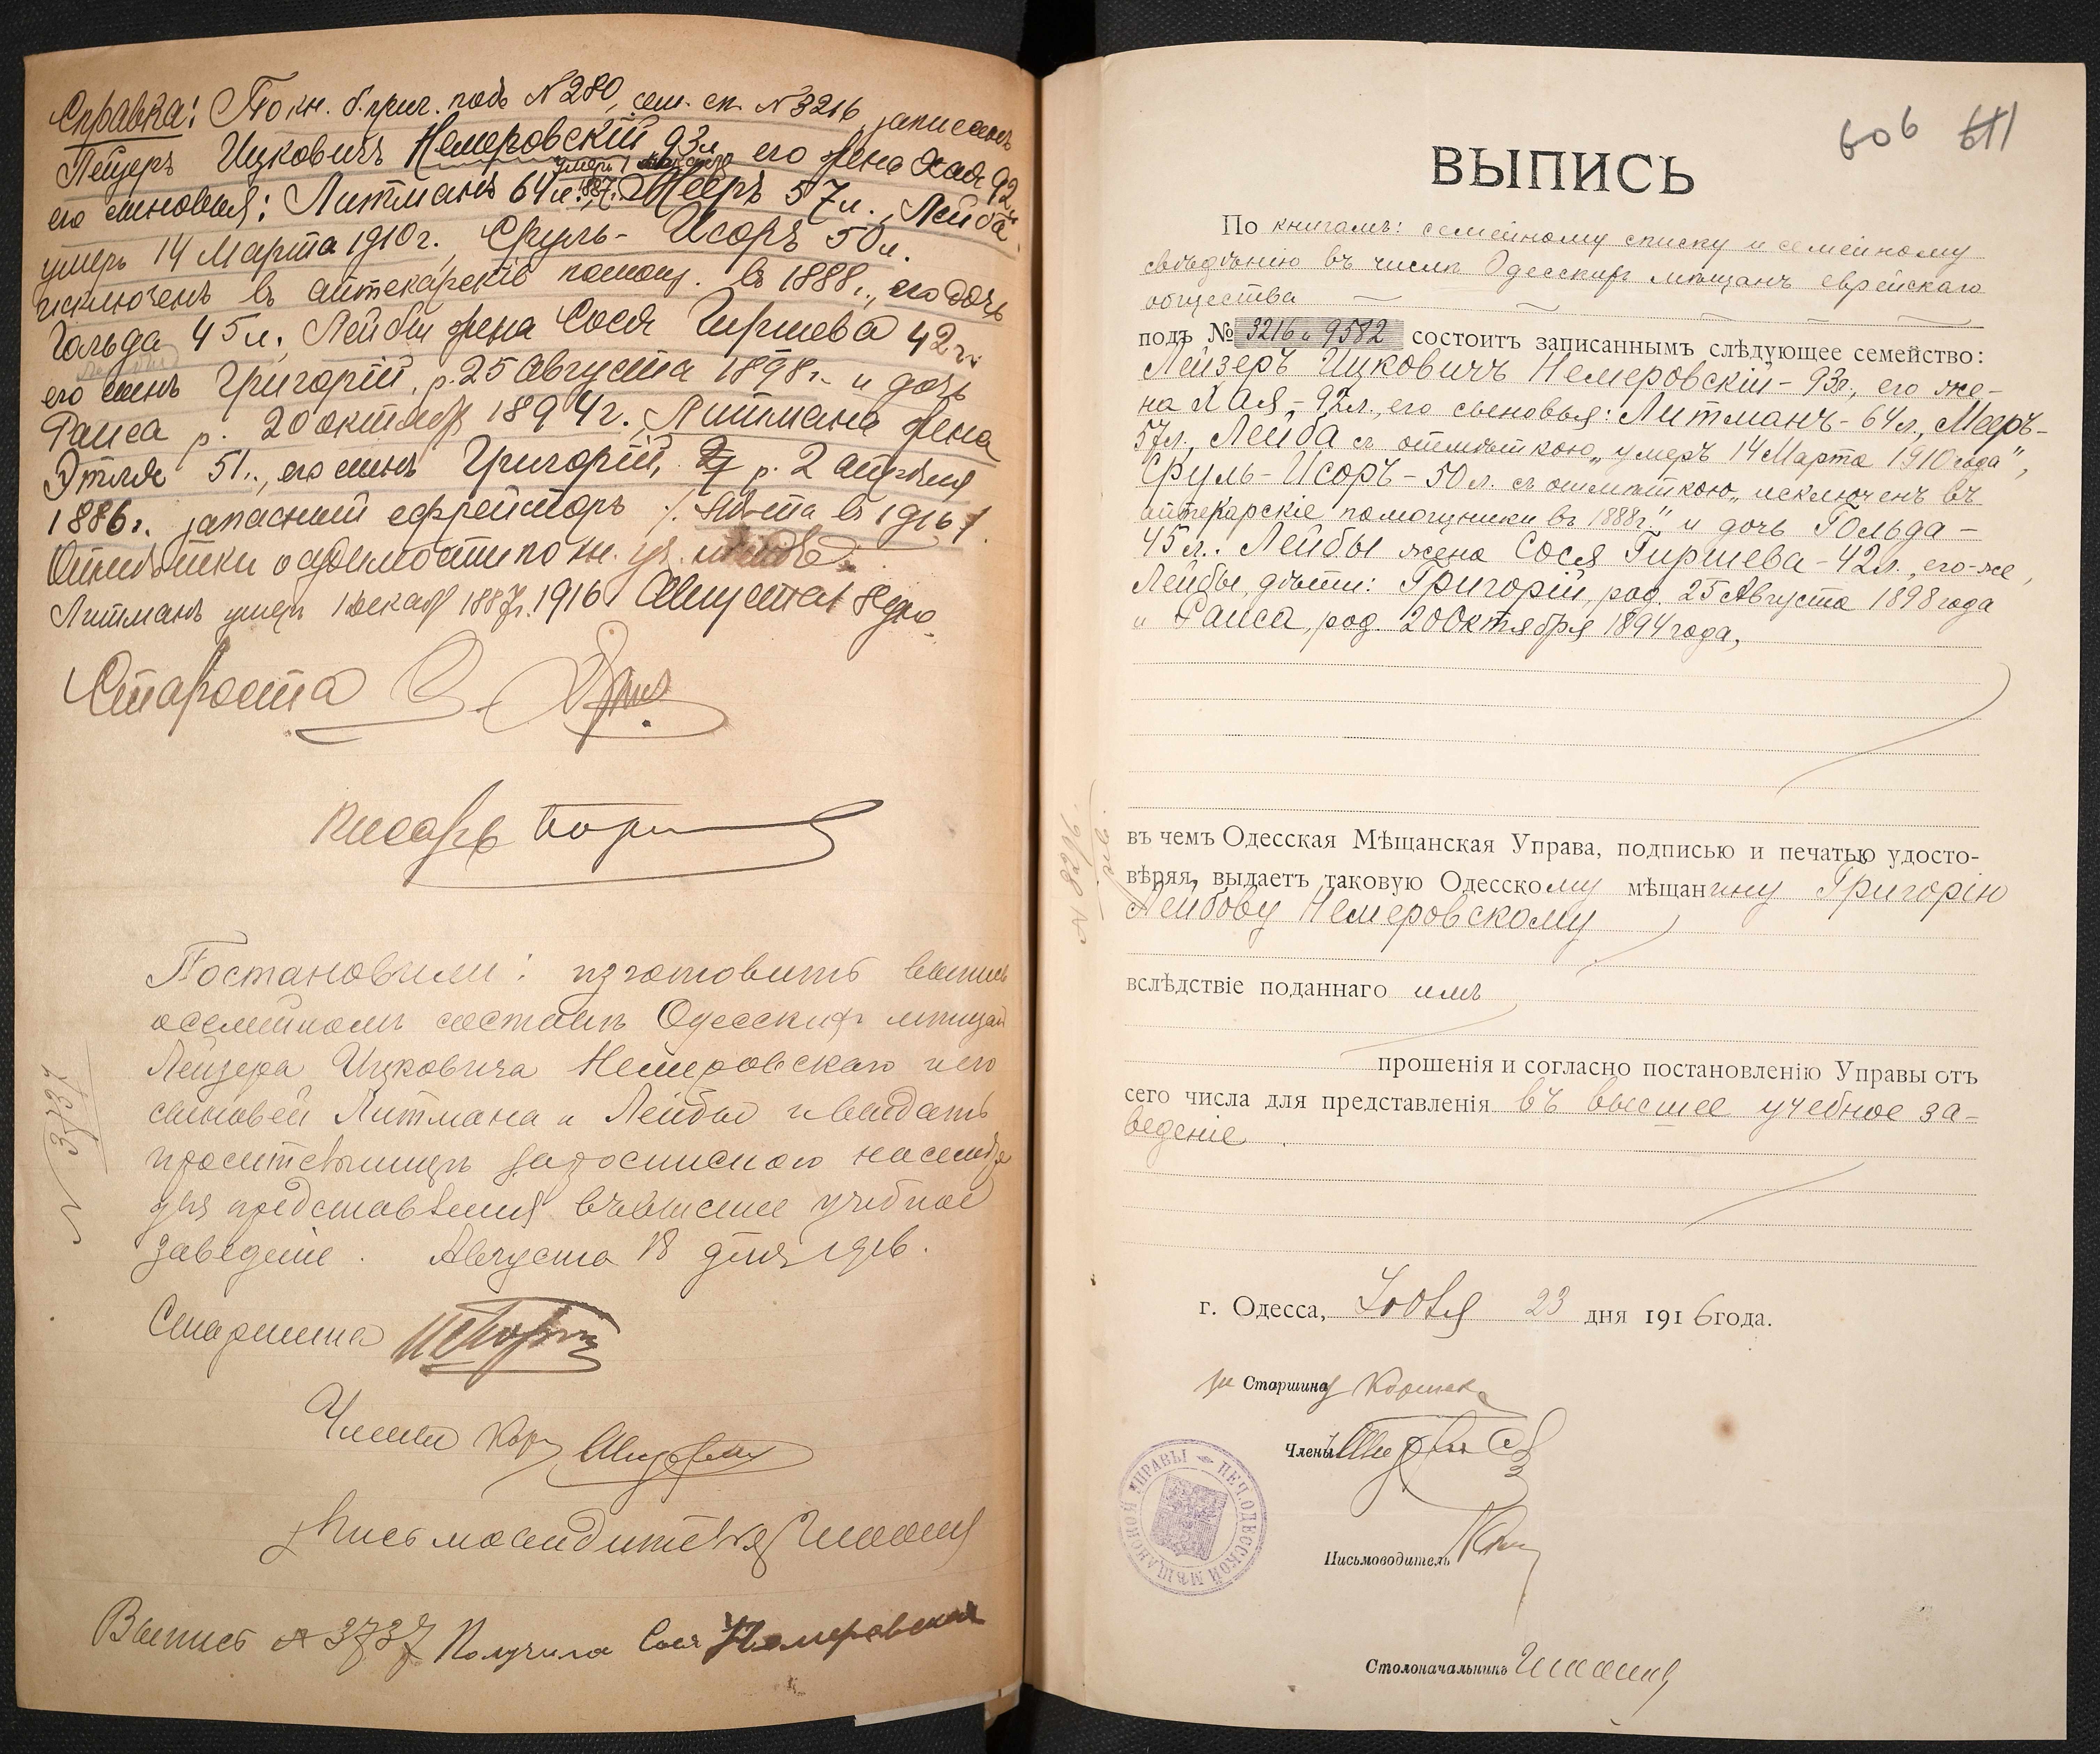 Справка: По кн. б. приг. подъ № 280, сем. сп. № 3216 записанъ
Лейзеръ Ицковичъ Немеровскій 93 л., его жена Хая 92 л.
умеръ 1
1887 г.
его сыновья: Литманъ 64 л., Мееръ 57 л., Лейба
умеръ 14 Марта 1910 г., Сруль-Исоръ 50 л.
исключенъ въ аптекарскіе помощ. въ 1888 г., его дочь
Гольда 45 л. Лейбы жена Сося Гиршева 42 л.
его сынъ Григорій, р. 25 Августа 1898 г. и дочь
Раиса р. 20 октября 1894 г. Литмана жена
Этля 51 л., его сынъ Григорій, р. 2 апрѣля
1886 г. запасный ефрейторъ
Отмѣтки о судимости по кн.
Литманъ умеръ 1 декабря 1887 г. 1916 г. Августа 18 дня
Староста
Писарь
Постановили: изготовить выпись
о семейномъ составѣ Одесскихъ мѣщан
Лейзера Ицковича Немеровскаго и его
сыновей Литмана и Лейбы и выдать
для представленія въ высшее учебное
заведеніе. Августа 18 дня 1916.
№ 3737
Старшина
Члены
Письмоводитель
Выпись № 3737 Получила Сося Немеровская
606 611
ВЫПИСЬ
По книгамъ: семейному списку и семейному
свѣдѣнію въ числѣ Одесскихъ мѣщанъ еврейскаго
общества
подъ № 3216 и 9582 состоитъ записаннымъ слѣдующее семейство:
Лейзеръ Ицковичъ Немеровскій - 93 г., его же-
на Хая - 92 л., его сыновья: Литманъ - 64 л., Мееръ -
57 л., Лейба съ отмѣткою „умеръ 14 Марта 1910 года",
Сруль-Исоръ - 50 л. съ отмѣткою „исключенъ въ
аптекарскіе помощники въ 1888 г." и дочь Гольда -
45 л. Лейбы жена Сося Гиршева - 42 л., его-же,
Лейбы, дѣти: Григорій, род. 25 Августа 1898 года
и Раиса, род. 20 Октября 1894 года,
въ чемъ Одесская Мѣщанская Управа, подписью и печатью удосто-
вѣряя, выдаетъ таковую Одесскому мѣщанину Григорію
Лейбову Немеровскому
вслѣдствіе поданнаго имъ
прошенія и согласно постановленію Управы отъ
сего числа для представленія въ высшее учебное за-
ведение.
г. Одесса, 23 дня 1916 года.
Старшина
Члены
Письмоводитель
Столоначальникъ
ПЕЧ. ОДЕССКОЙ МѢЩАНСКОЙ УПРАВЫ